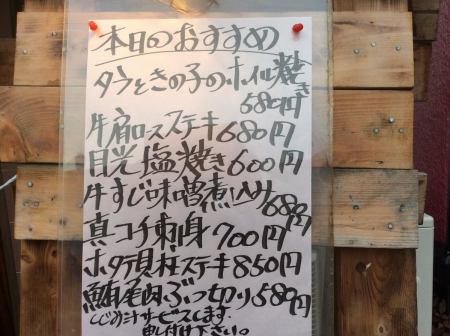 本日のおすすめ
タラときの子のホイル焼き
680円
牛肩ロースステキ680円
目光塩焼き600円
牛すじ味噌煮込み680円
真コチ刺身700円
ホタテ貝柱ステキ850円
鮪尾肉ぶつ切り580円
しじみ汁サービスします。
申し付け下さい。